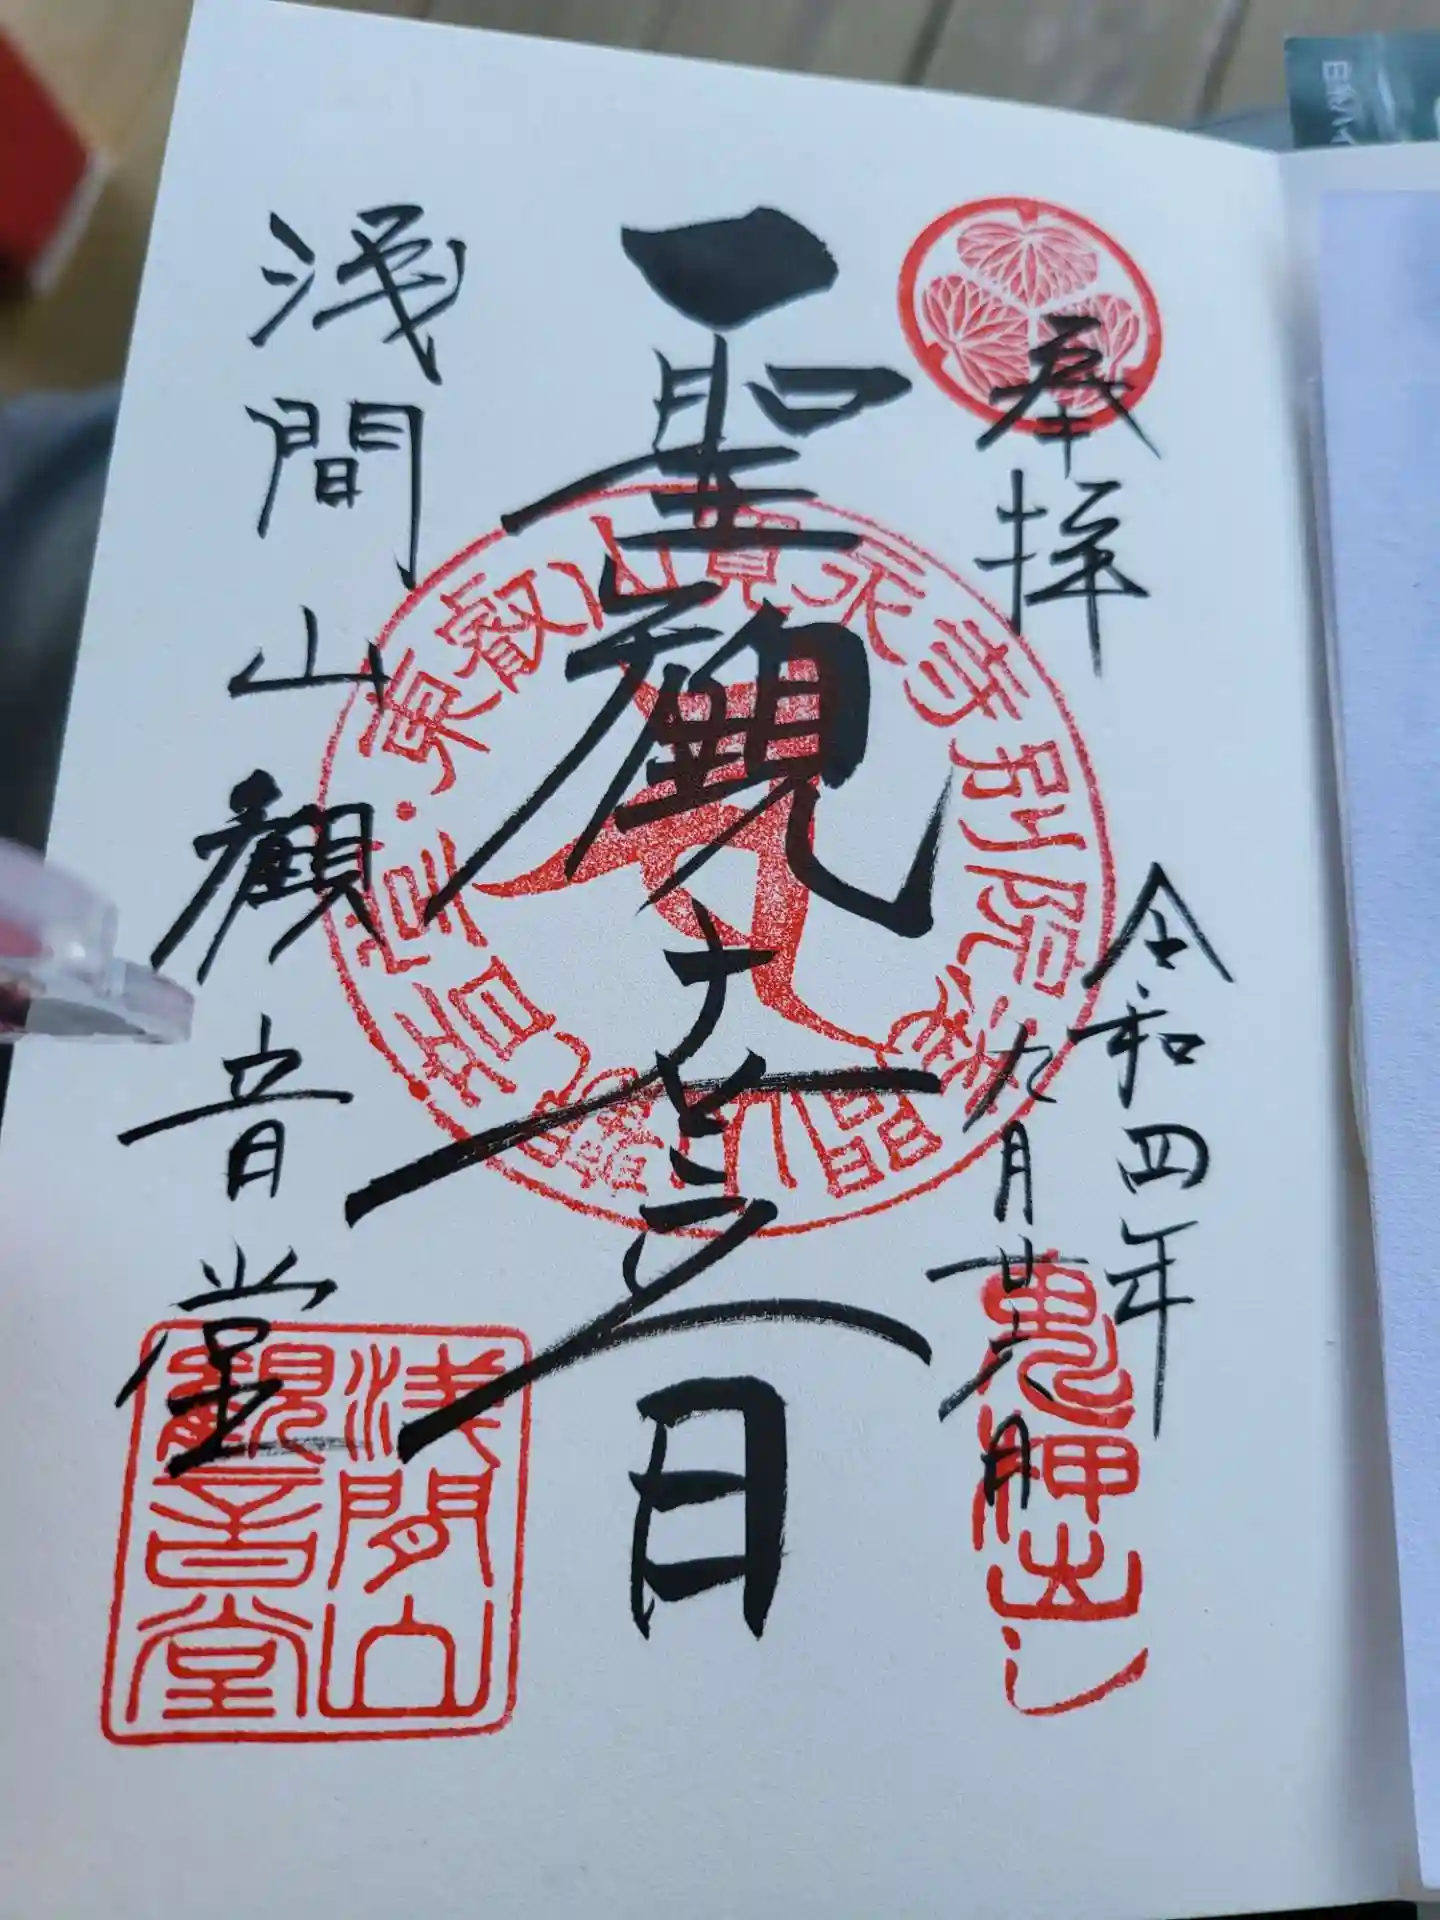 奉拝
令和四年
九月廿八日
聖観世音
浅間山観音堂
東叡山寛永寺別院浅間山観音堂
鬼押出し
浅間山
観音堂